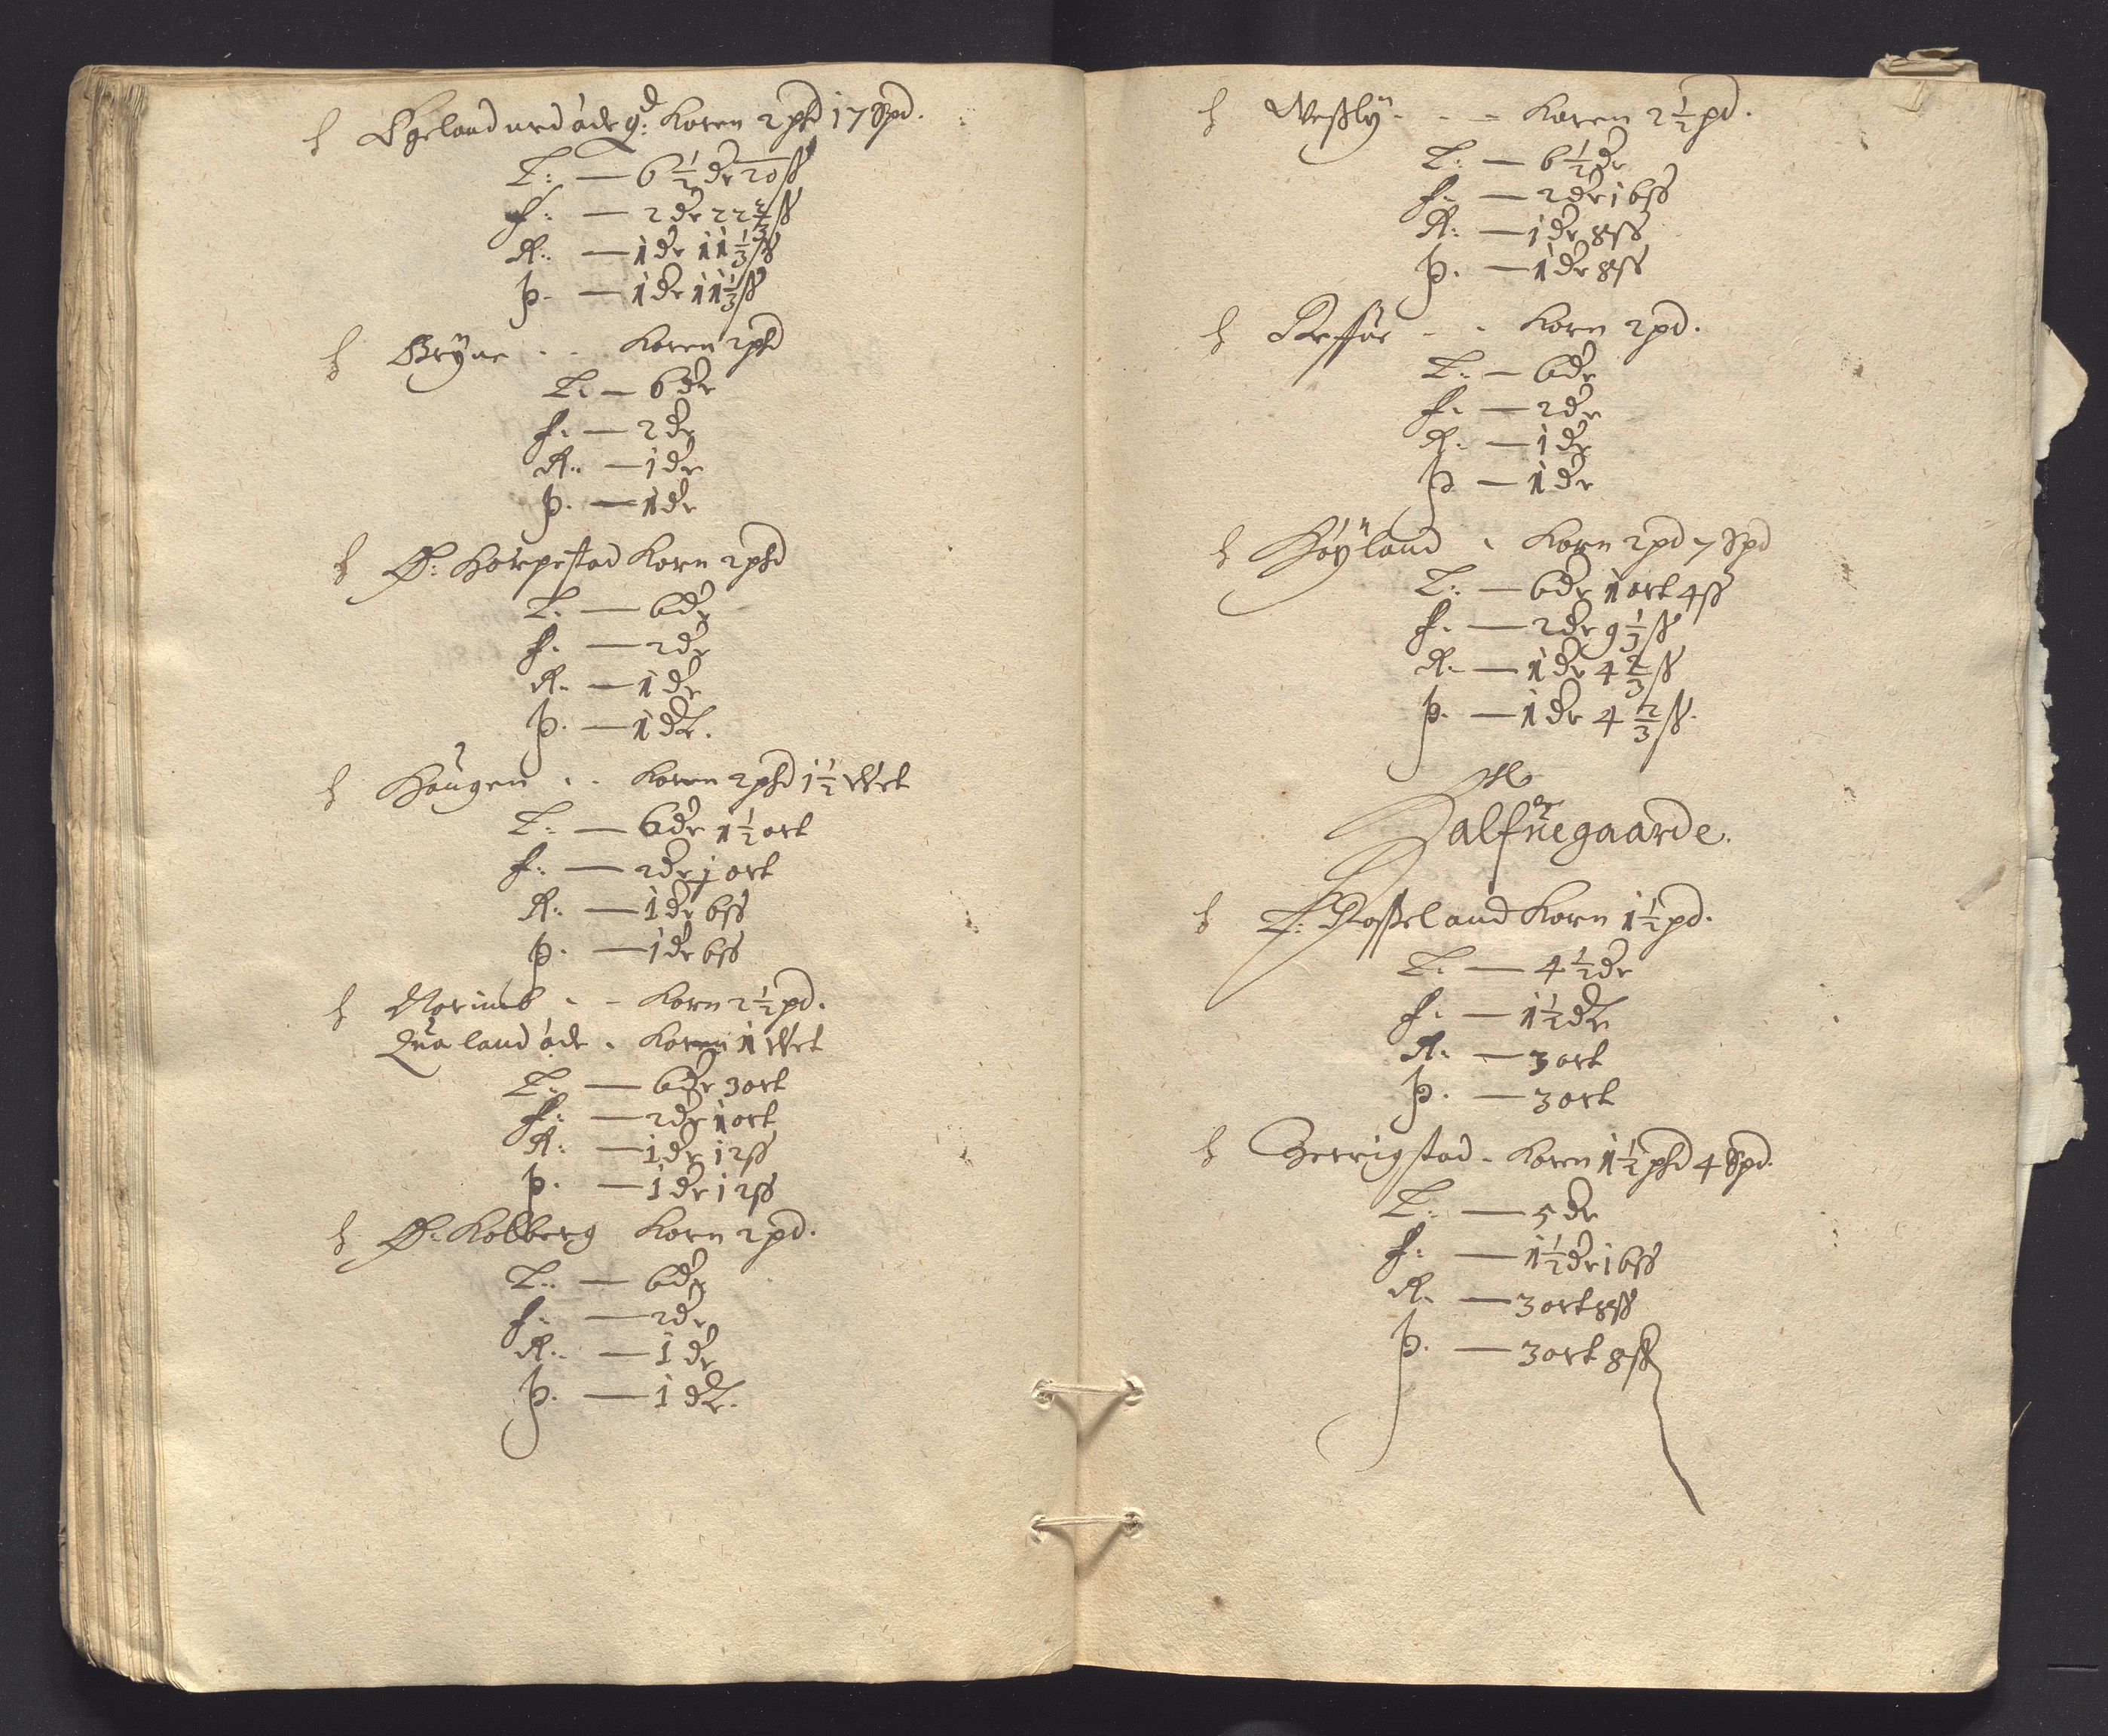 Egeland med øde gd: Koren 2 phd 17 Spd.
T: — 6 1/2 dr 20 ß
f: — 2 dr 22 2/3 ß
R: — 1 dr 11 1/3 ß
þ. — 1 dr 11 1/3 ß
Bryne - - Koren 2 phd
T. — 6 dr
f. — 2 dr
R: — 1 dr
þ. — 1 dr
Ø: Horpestad Korn 2 phd
T. — 6 dr
f. — 2 dr
R. — 1 dr
þ. — 1 dr.
Haugen - - Koren 2 phd 1 1/2 Wet
T: — 6 dr 1 1/2 ort
f: — 2 dr j ort
R: — 1 dr 6 ß
þ. — 1 dr 6 ß
Norimb - - Korn 2 1/2 pd.
Qualand øde - Koren 1 Wet
T: — 6 dr 3 ort
f: — 2 dr 1 ort
R: — 1 dr 12 ß
þ. — 1 dr 12 ß
Ø. Kolberg Korn 2 pd.
T: — 6 dr
f. — 2 dr
R: — 1 dr
þ. — 1 dr.
Weßlÿ - - - Koren 2 1/2 pd.
T: — 6 1/2 dr
f. — 2 dr 16 ß
R: — 1 dr 8 ß
þ. — 1 dr 8 ß
- - Korn 2 pd.
T: — 6 dr
f. — 2 dr
R. — 1 dr
þ — 1 dr
Høÿland - Korn 2 pd 7 Spd
T: — 6 dr 1 ort 4 ß
f. — 2 dr 9 1/3 ß
R. — 1 dr 4 2/3 ß
þ. — 1 dr 4 2/3 ß.
Halfuegaarde.
Roßeland Korn 1 1/2 pd.
T. — 4 1/2 dr
f. — 1 1/2 dr
R. — 3 ort
þ. — 3 ort
Gerrigstad - Koren 1 1/2 phd 4 Spd.
T: — 5 dr
f: — 1 1/2 dr 16 ß
R. — 3 ort 8 ß
þ. — 3 ort 8 ß